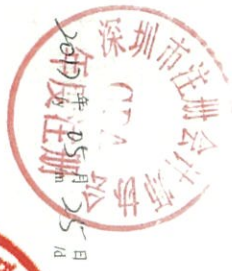 深圳市注册会计师协会
CPA
年度注册
2013年05月25日
/m
/d